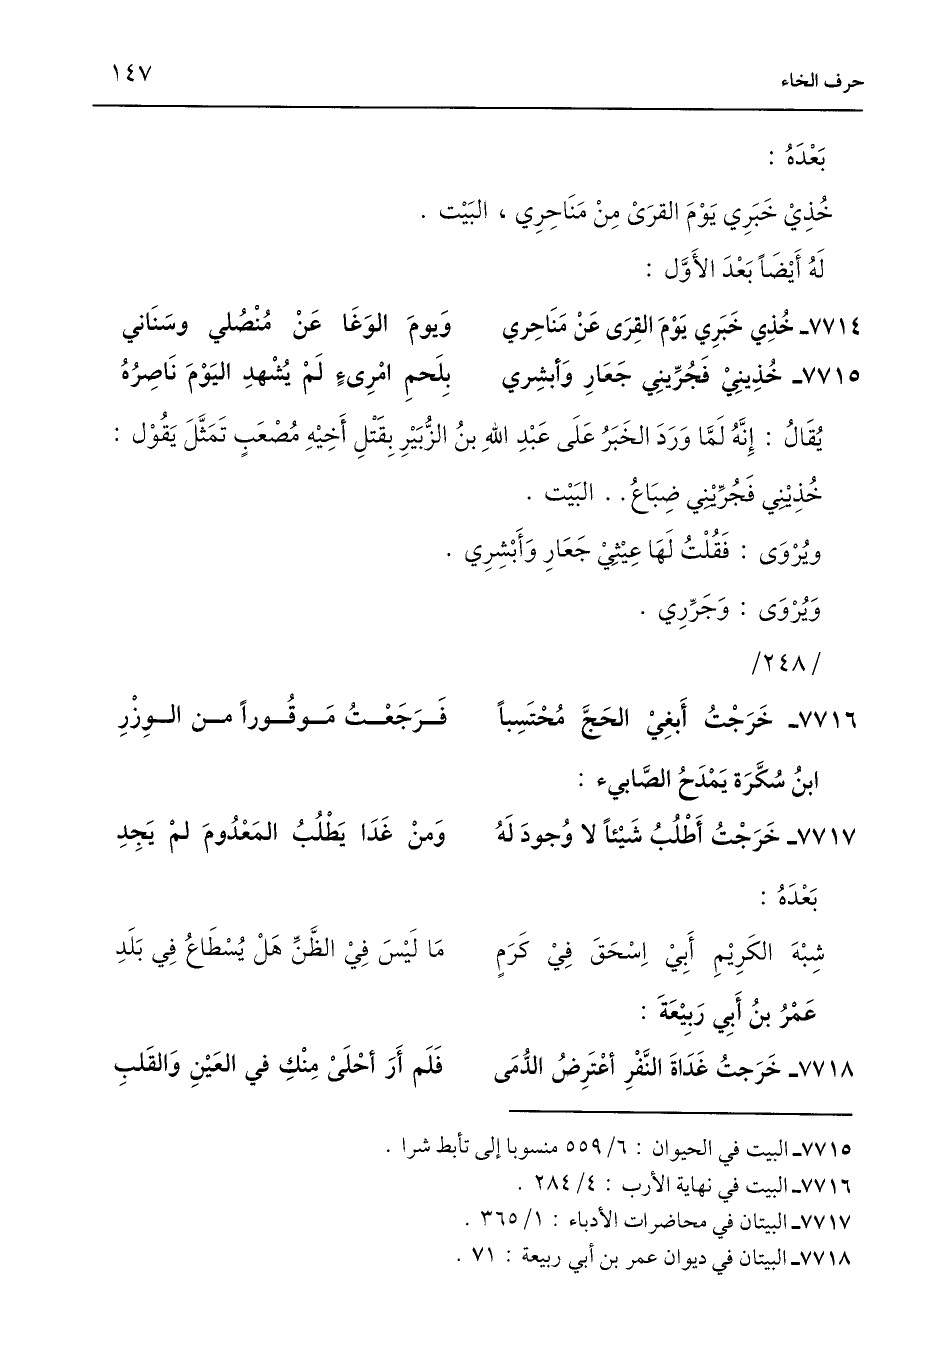 حرف الخاء ١٤٧
بَعْدَهُ :
خُذِيْ خَبَرِي يَوْمَ القرَىْ مِنْ مَنَاحِرِي ، البَيْت .
لَهُ أَيْضَاً بَعْدَ الأَوَّل :
٧٧١٤ـ خُذِي خَبَرِي يَوْمَ القِرَى عَنْ مَنَاحِرِي وَيومَ الوَغَا عَنْ مُنْصُلي وسَنَاني
٧٧١٥ـ خُذِينِيْ فَجُرِّينِي جَعَارِ وَأَبشِري بِلَحمِ امْرِىءٍ لَمْ يُشْهدِ اليَوْمَ نَاصِرُهُ
يُقَالُ : إِنَّهُ لَمَّا وَرَدَ الخَبَرُ عَلَى عَبْدِ اللهِ بنُ الزُّبَيْرِ بِقَتْلِ أَخِيْهِ مُصْعَبٍ تَمَثَّلَ يَقُوْل :
خُذِيْنِي فَجُرِّيْنِي ضِبَاعُ.. البَيْت .
ويُرْوَى : فَقُلْتُ لَهَا عِيْثِيْ جَعَارِ وَأَبْشِرِي .
وَيُرْوَى : وَجَرِّرِي .
/٢٤٨/
٧٧١٦ـ خَرَجْتُ أَبغِيْ الحَجَّ مُحْتَسِباً فَـرَجَعْـتُ مَـوقُـوراً مـن الـوِزْرِ
ابنُ سُكَّرَة يَمْدَحُ الصَّابيء :
٧٧١٧ـ خَرَجْتُ أَطْلُبُ شَيْئاً لا وُجودَ لَهُ وَمنْ غَدَا يَطْلُبُ المَعْدُومَ لمْ يَجِدِ
بَعْدَهُ :
شِبْهَ الكَرِيْمِ أَبِيْ إِسْحَقَ فِيْ كَرَمٍ مَا لَيْسَ فِيْ الظَّنِّ هَلْ يُسْطَاعُ فِي بَلَدِ
عَمْرُ بنُ أَبِي رَبِيْعَةَ :
٧٧١٨ـ خَرَجتُ غَدَاةَ النَّفْرِ أعْتَرِضُ الدُّمَى فَلَم أَرَ أحْلَىْ مِنْكِ في العَيْنِ وَالقَلبِ
٧٧١٥ـ البيت في الحيوان : ٦/ ٥٥٩ منسوبا إلى تأبط شرا .
٧٧١٦ـ البيت في نهاية الأرب : ٤/ ٢٨٤ .
٧٧١٧ـ البيتان في محاضرات الأدباء : ١/ ٣٦٥ .
٧٧١٨ـ البيتان في ديوان عمر بن أبي ربيعة : ٧١ .